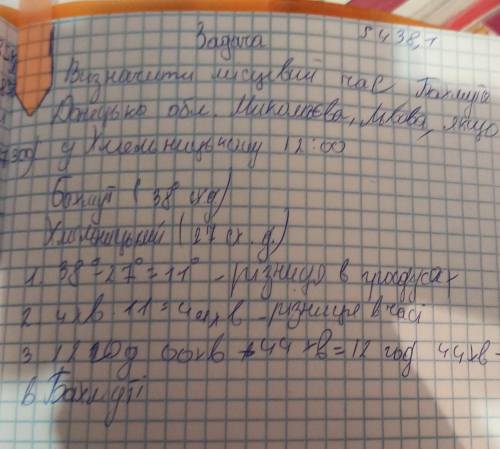 Задача
Визначити місцевий час Бахмута
Донецько обл. Миколаєва, Львова, якщо
у Хмельницькому 12:00
Бахмут (38 сх д)
Хмельницький (27 сх. д.)
1. 38°-27°=11° - різниця в градусах
2 4хв · 11 = 44хв - різниця в часі
3 12 год 00хв + 44 хв = 12 год 44хв -
в Бахмуті